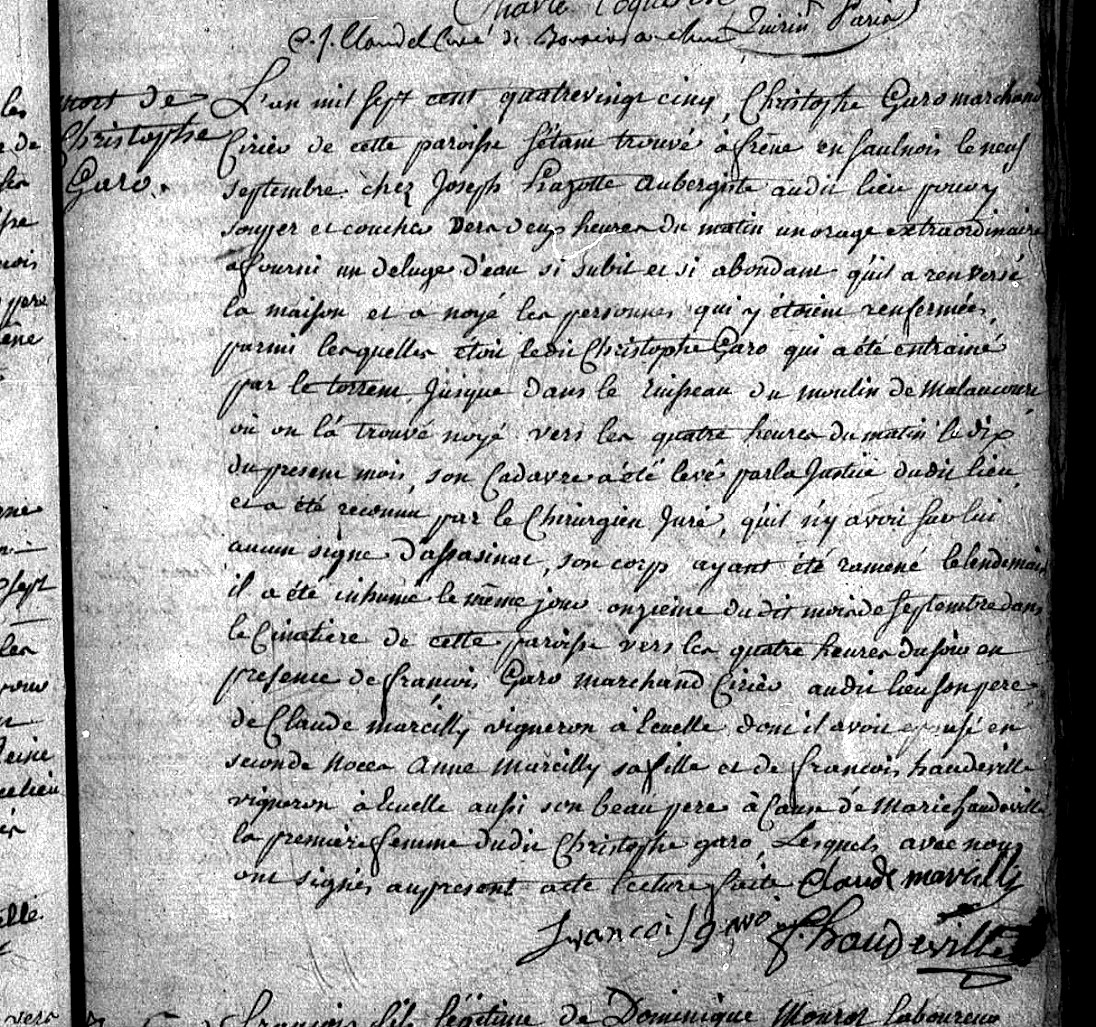 Charle
C. J. Claudel Curé de Quirin Paria
mort de
Christophe
Garo.
L'an mil sept cent quatrevingt cinq, Christophe Garo marchand
Cirier de cette paroisse s'etant trouvé à frêne en saulnois le neuf
septembre chez Joseph hazotte aubergiste audit lieu pour y
souper et coucher vers deux heures du matin un orage extraordinaire
a fourni un deluge d'eau si subit et si abondant qu'il a renversé
la maison et a noyé les personnes qui y étoient renfermées,
parmi lesquelles étoit ledit Christophe Garo qui a été entrainé
par le torrent jusque dans le ruisseau du moulin de malaucourt
où on l'a trouvé noyé vers les quatre heures du matin le dix
du present mois, son Cadavre a été levé par la Justice dudit lieu,
et a été reconnu par le Chirurgien Juré, qu'il n'y avoit sur lui
aucun signe d'assasinat, son corp ayant été ramené le lendemain
il a été inhumé le même jour onzieme dudit mois de septembre dans
le Cimetiere de cette paroisse vers les quatre heures du soir en
presence de francois Garo marchand Cirier audit lieu son pere
de Claude marcilly vigneron à lcuelle dont il avoit epousé en
seconde noces Anne Marcilly sa fille et de francois haudeville
vigneron à lcuelle aussi son beau pere à Cause de Marie haudeville
la premiere femme dudit Christophe garo, Lesquels avec nous
ont signés au present acte lecture faite Claude marcilly
francois garo f haudeville
francois fils légitime de Dominique laboureur